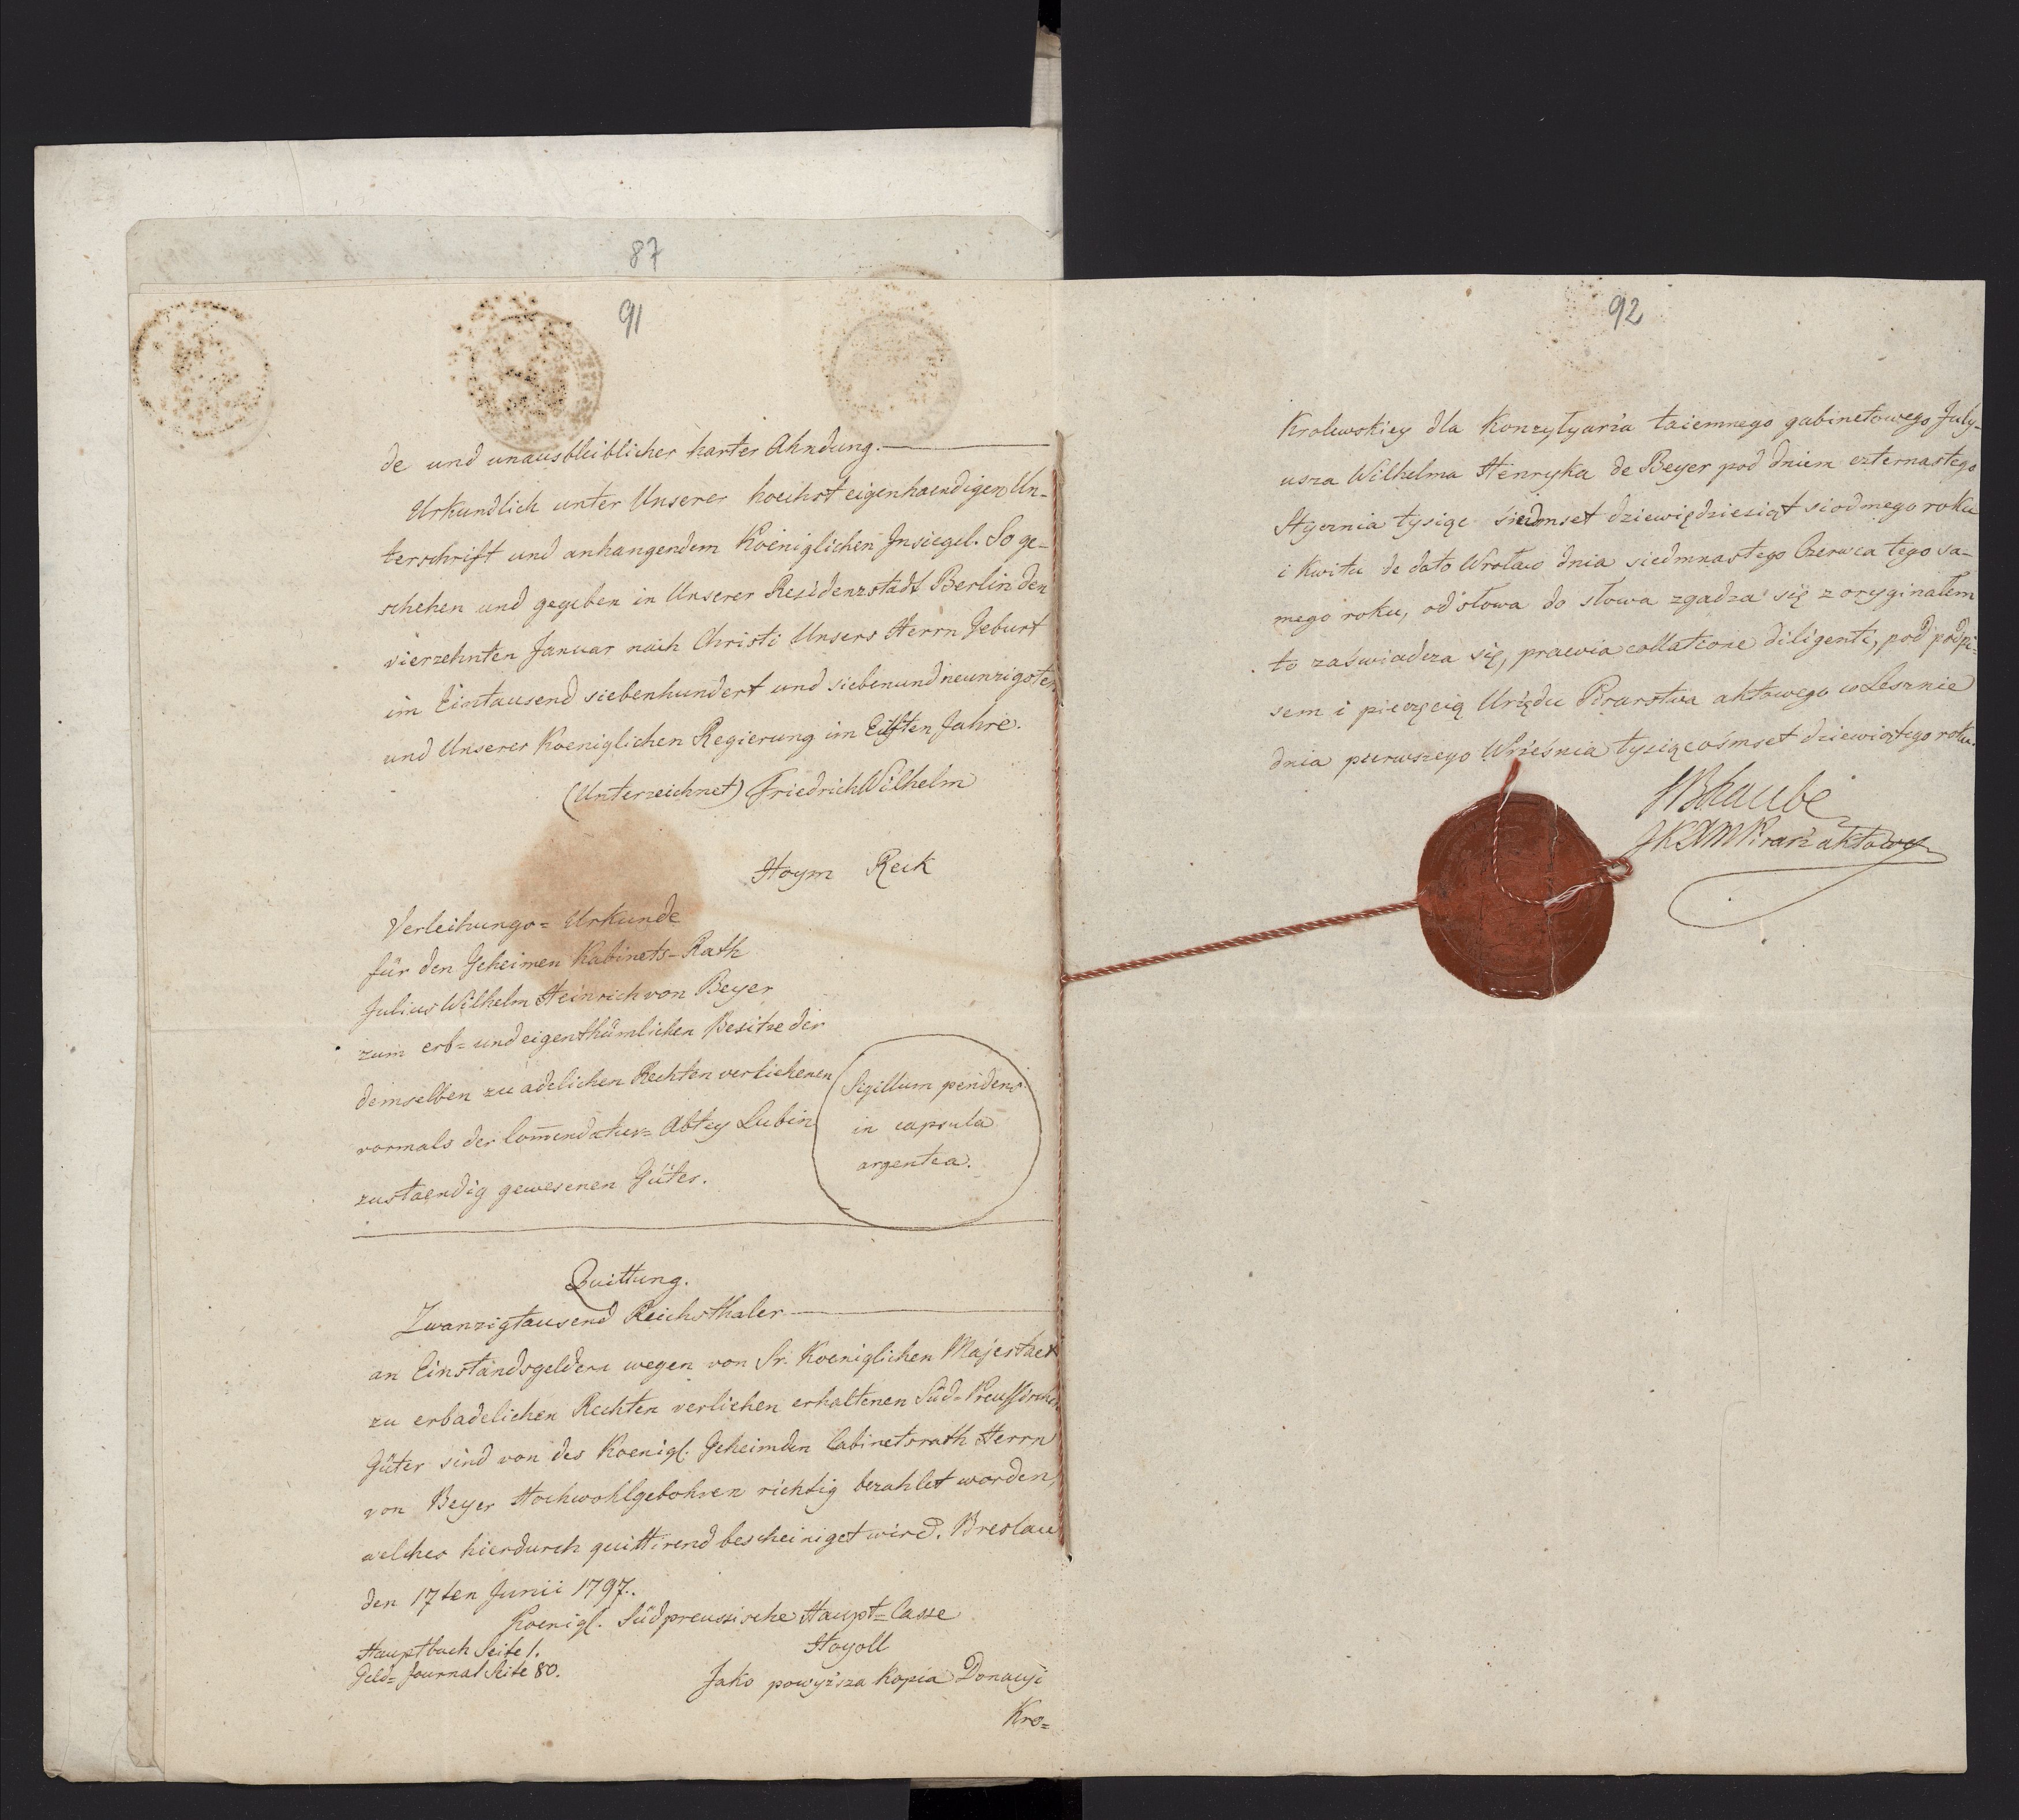 87
91
de und unausbleiblicher harter Ahndung.
Urkundlich unter Unserer hoechst eigenhaendigen Un-
terschrift und anhangendem Koeniglichen Insiegel. So ge-
schehen und gegeben in Unserer Residenzstadt Berlin den
vierzehnten Januar nach Christi Unsers Herrn Geburt
im Eintausend siebenhundert und siebenundneunzigsten
und Unserer Koeniglichen Regierung im Eilften Jahre.
(Unterzeichnet) Friedrich Wilhelm
Hoym Reck
Verleihungs= Urkunde
für den Geheimen Kabinets-Rath
Julius Wilhelm Heinrich von Beyer
zum erb= und eigenthümlichen Besitze der
demselben zu adelichen Rechten verliehenen
vormals der Com̅endatur= Abtey Lubin
zustaendig gewesenen Güter.
Sigillum pendens
in capsula
argentea.
Quittung.
Zwanzigtausend Reichsthaler
an Einstandsgeldern wegen von Sr. Koeniglichen Majestaet
zu erbadelichen Rechten verliehen erhaltenen Süd-Preussischen
Güter sind von des Koenigl. Geheimden Cabinetsrath Herrn
von Beyer Hochwohlgebohren richtig bezahlet worden,
welches hierdurch quittirend bescheiniget wird. Breslau
den 17ten Junii 1797.
Koenigl. Südpreussische Haupt=Casse
Hauptbuch Seite 1.
Hoyoll
Geld= Journal Seite 80.
Jako powyższa kopia Donacyi
Kro=
92
Krolewskiey dla Konzyliarza taiemnego gabinetowego July-
usza Wilhelma Henryka de Beyer pod dniem czternastego
Stycznia tysiąc siedmset dziewiędziesiąt siodmego roku
i kwitu de dato Wrocław dnia siedmnastego Czerwca tego sa-
mego roku, od słowa do słowa zgadza się z oryginałem
to zaświadcza się, praevia collatione diligenti, pod podpi-
sem i pieczęcią Urzędu Pisarstwa aktowego w Lesznie
dnia pierwszego Września tysiąc ośmset dziewiątego roku.
Pisarz aktowy